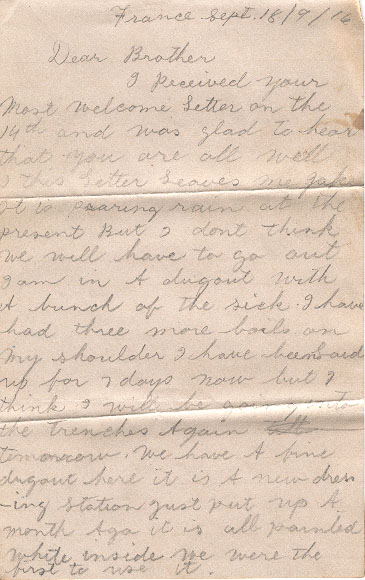 France Sept. 18/9/16
Dear Brother
I Received your
Most welcome Letter on the
14th and was glad to hear
that you are all well
this Letter Leaves me jake
It is pouring rain at the
present But I dont think
we will have to go out
I am in A dugout with
A bunch of the sick. I have
had three more boils on
my shoulder I have been Laid
up for 7 days now but I
think I will be going into
the trenches Again
tomorrow. We have A fine
dugout here it is A new dress
-ing Station just put up A
month Ago it is all painted
white inside we were the
first to use it